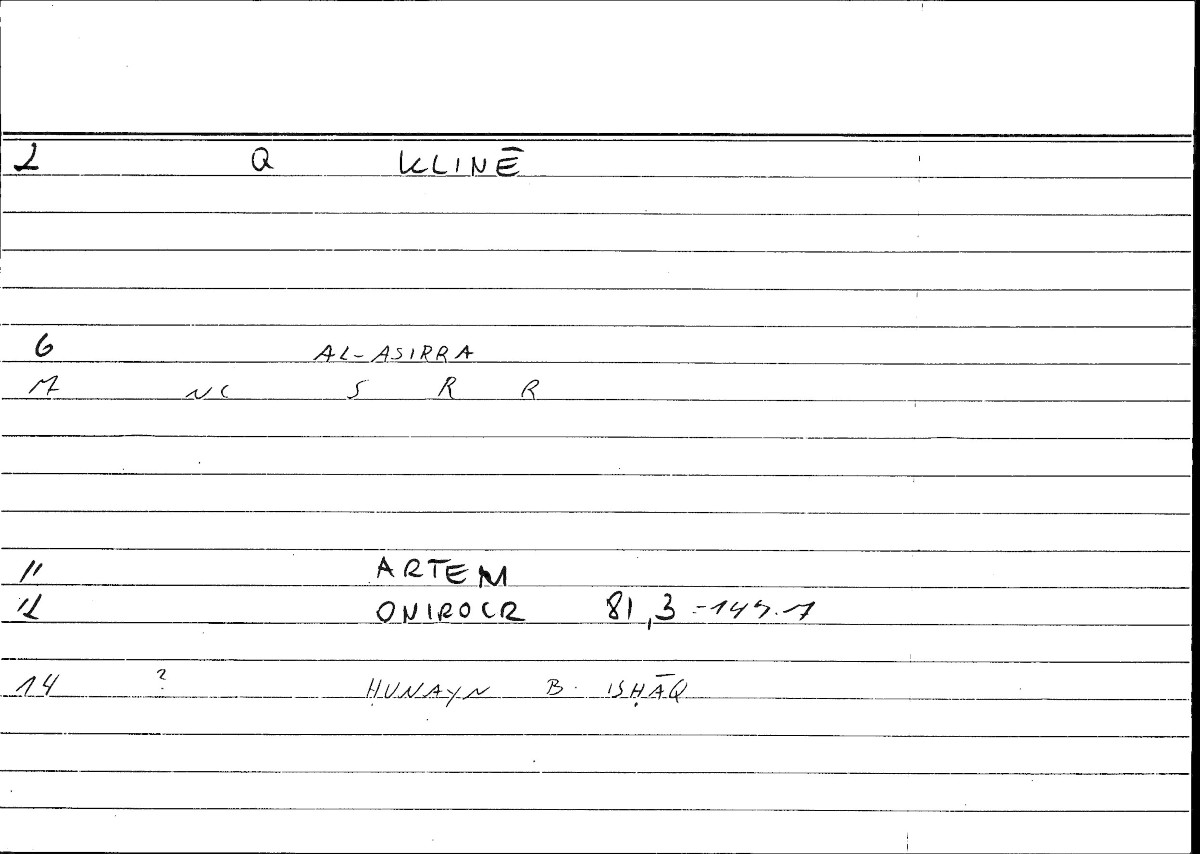 2 Q KLINĒ
6 AL-ASIRRA
7 NC S R R
11 ARTEM
12 ONIROCR 81,3 =
14 ? ḤUNAYN B. ISḤĀQ